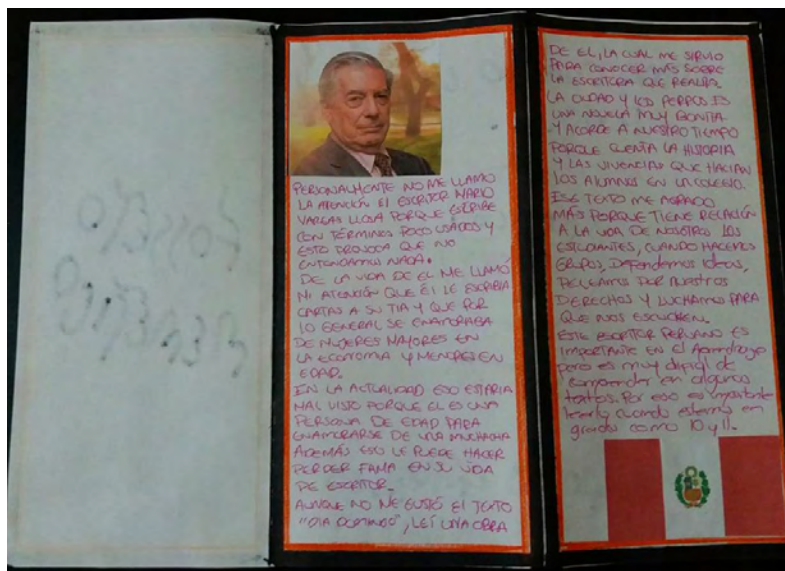 PERSONALMENTE NO ME LLAMO
LA ATENCIÓN El ESCRITOR MARIO
VARGAS LLOSA PORQUE ESCRIBE
CON TÉRMINOS POCO USADOS Y
ESTO PROVOCA QUE NO
ENTENDAMOS NADA.
DE LA VIDA DE EL ME LLAMÓ
MI ATENCIÓN QUE ÉL LE ESCRIBIA
CARTAS A SU TIA Y QUE POR
LO GENERAL SE ENAMORABA
DE MUJERES MAYORES EN
LA ECONOMIA Y MENORES EN
EDAD.
EN LA ACTUALIDAD ESO ESTARIA
MAL VISTO PORQUE EL ES UNA
PERSONA DE EDAD PARA
ENAMORARSE DE UNA MUCHACHA
ADEMÁS ESO LE PUEDE HACER
PERDER FAMA EN SU VIDA
DE ESCRITOR.
AUNQUE NO ME GUSTÓ El TEXTO
"DIA DOMINGO", LEÍ UNA OBRA
DE EL, LA CUAL ME SIRVIO
PARA CONOCER MÁS SOBRE
LA ESCRITURA QUE REALIZA.
LA CIUDAD Y LOS PERROS ES
UNA NOVELA MUY BONITA
Y ACORDE A NUESTRO TIEMPO
PORQUE CUENTA LA HISTORIA
Y LAS VIVENCIAS QUE HACIAN
LOS ALUMNOS EN UN COLEGIO.
ESE TEXTO ME AGRADO
MÁS PORQUE TIENE RELACIÓN
A LA VIDA DE NOSOTROS LOS
ESTUDIANTES, CUANDO HACEMOS
GRUPOS, Defendemos Ideas,
PELEAMOS POR NUESTROS
DERECHOS Y LUCHAMOS PARA
QUE NOS ESCUCHEN.
ESTE ESCRITOR PERUANO ES
IMPORTANTE EN El Aprendizaje
pero es muy difícil de
comprender en algunos
textos. Por eso es importante
leerlo cuando estemos en
grados como 10 y 11.